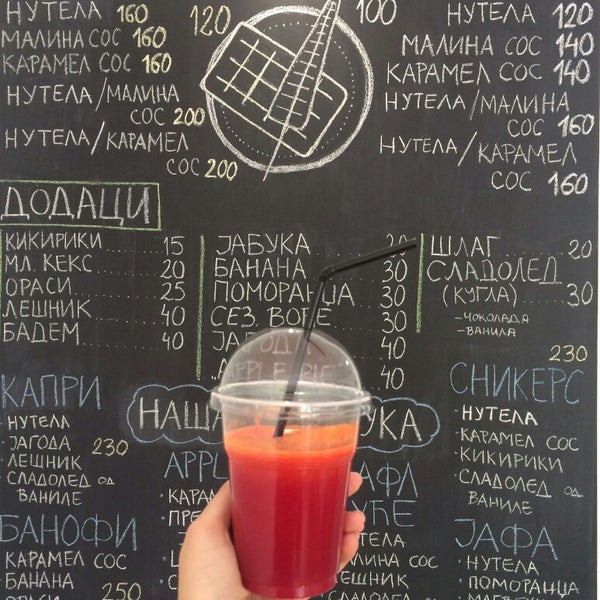 НУТЕЛА 160
МАЛИНА СОС 160
КАРАМЕЛ СОС 160
НУТЕЛА/МАЛИНА
СОС 200
НУТЕЛА/КАРАМЕЛ
СОС 200
120
100
НУТЕЛА 120
МАЛИНА СОС 140
КАРАМЕЛ СОС 140
НУТЕЛА/МАЛИНА
СОС 160
НУТЕЛА/КАРАМЕЛ
СОС 160
ДОДАЦИ
КИКИРИКИ 15
МЛ. КЕКС 20
ОРАСИ 25
ЛЕШНИК 40
БАДЕМ 40
ЈАБУКА 20
БАНАНА 30
ПОМОРАНЏА 30
СЕЗ. ВОЋЕ 30
ЈАГОДА 40
APPLE PIE 40
ШЛАГ 20
СЛАДОЛЕД
(КУГЛА) 30
-ЧОКОЛАДА
-ВАНИЛА
НАША
УКА
КАПРИ
· НУТЕЛА
· ЈАГОДА 230
· ЛЕШНИК
· СЛАДОЛЕД ОД
ВАНИЛЕ
БАНОФИ
КАРАМЕЛ СОС
· БАНАНА
ОРАСИ 250
APPL
· КАРА
· ПРЕ
АФЛ
УЋЕ
МАЛИНА СОС
ЛЕШНИК
СЛАДОЛЕД ОД
230
СНИКЕРС
· НУТЕЛА
· КАРАМЕЛ СОС
· КИКИРИКИ
· СЛАДОЛЕД ОД
ВАНИЛЕ
ЈАФА
· НУТЕЛА
· ПОМОРАНЏА